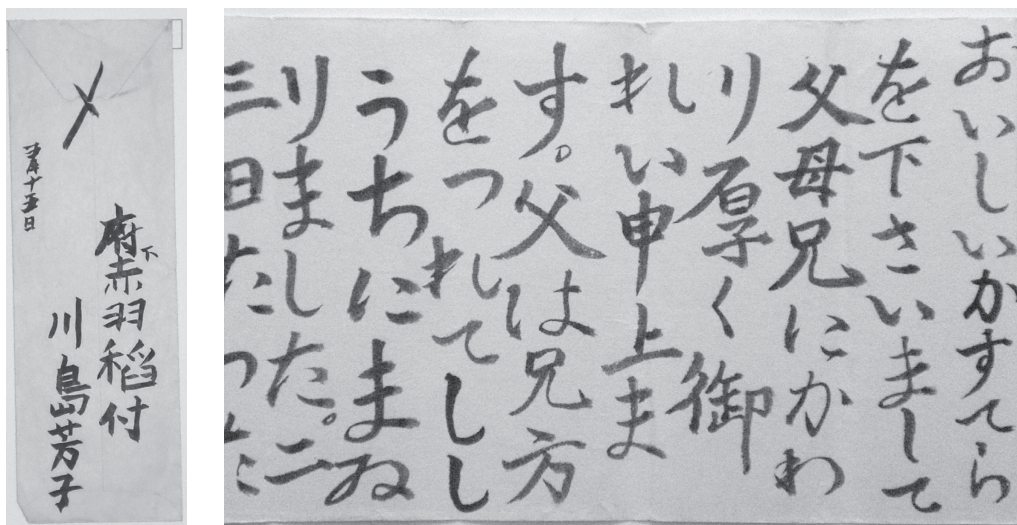 〆
府下赤羽稲付
川島芳子
月十五日
おいしいかすてら
を下さいまして
父母兄にかわ
り厚く御
れい申上ま
す。父は兄方
をつれてしし
うちにまゐ
りました。二
三日たつた